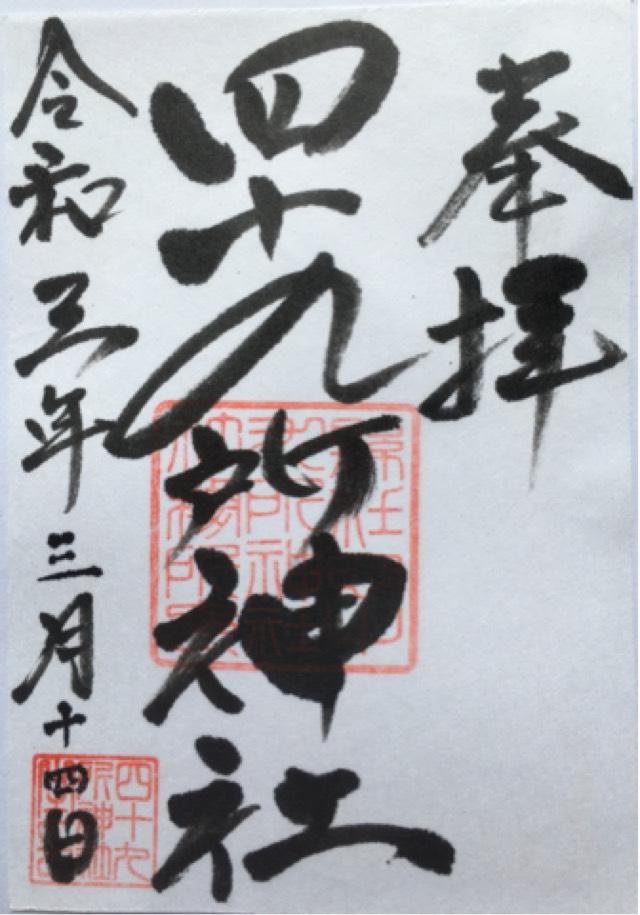 奉拝
四十九所神社
令和三年三月十四日
四十九
所神社